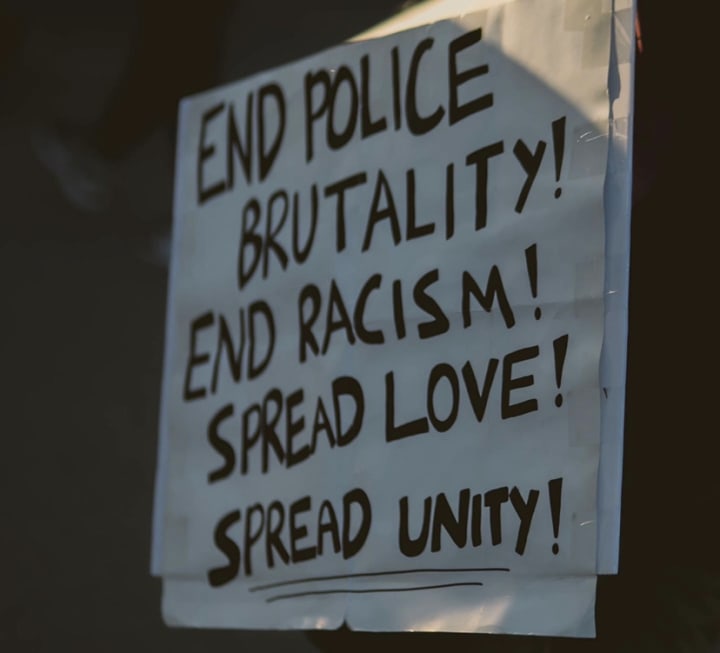 END POLICE
BRUTALITY!
END RACISM!
SPREAD LOVE!
SPREAD UNITY!